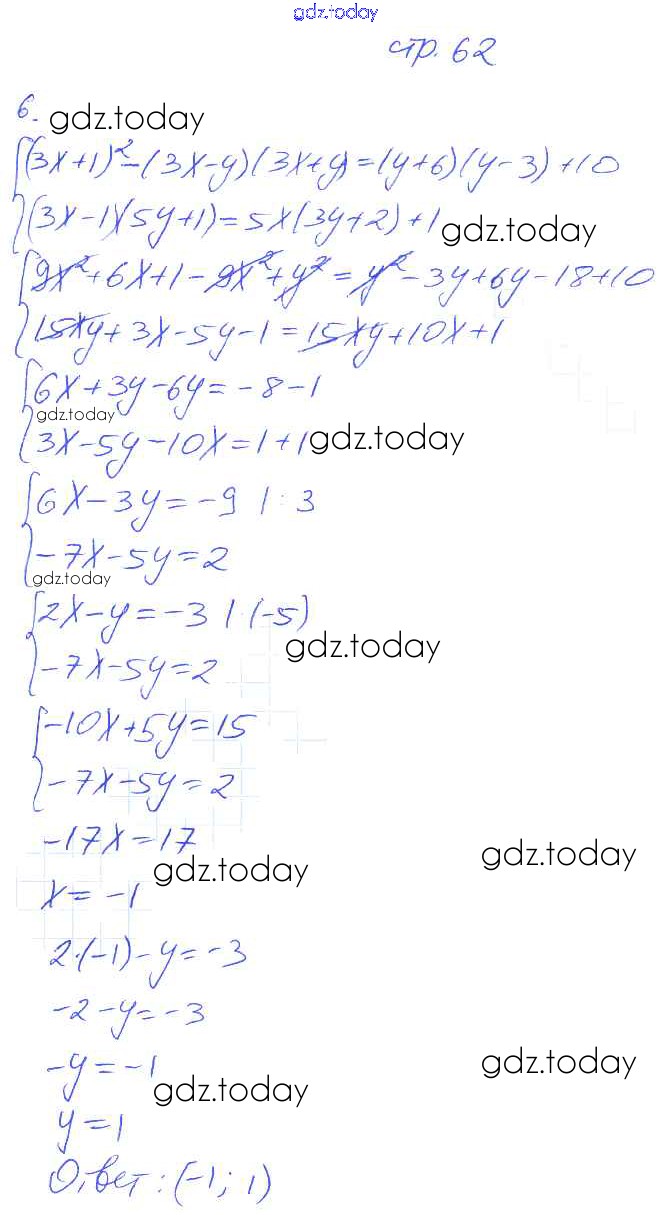 gdz.today
стр. 62
6.
gdz.today
(3x+1)²-(3x-y)(3x+y)=(y+6)(y-3)+10
(3x-1)(5y+1)=5x(3y+2)+1
gdz.today
9x²+6x+1-9x²+y²=y²-3y+6y-18+10
15xy+3x-5y-1=15xy+10x+1
6x+3y-6y=-8-1
gdz.today
3x-5y-10x=1+1
gdz.today
6x-3y=-9 | : 3
-7x-5y=2
gdz.today
2x-y=-3 | · (-5)
gdz.today
-7x-5y=2
-10x+5y=15
-7x-5y=2
-17x=17
gdz.today
gdz.today
x=-1
2·(-1)-y=-3
-2-y=-3
-y=-1
gdz.today
gdz.today
y=1
Ответ: (-1; 1)